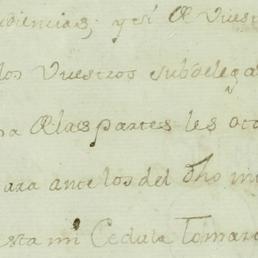 udiencias, y si de Vues
los Vuestros subdelega
na de las partes les oto
para ante los del dho mi
esta mi Cedula Tomaro